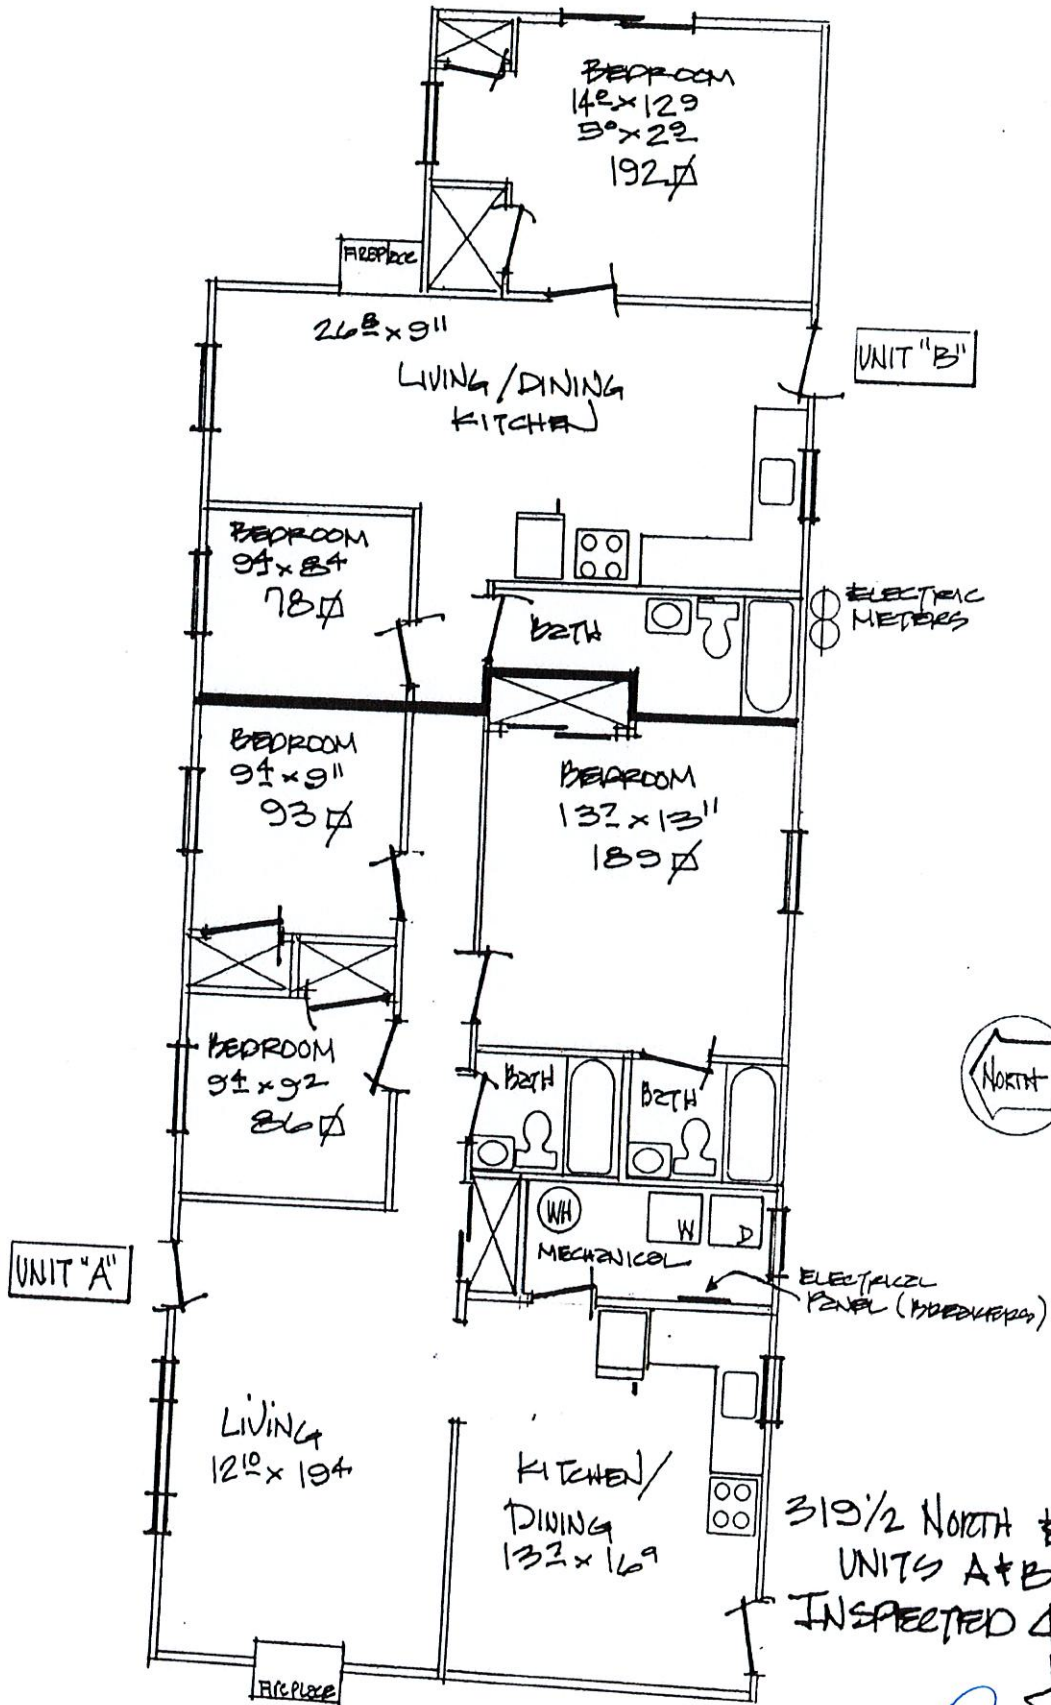 BEDROOM
14⁰ x 12⁹
5⁰ x 2⁹
192
FIREPLACE
26⁸ x 9¹¹
UNIT "B"
LIVING / DINING
KITCHEN
BEDROOM
9⁴ x 8⁴
78
BATH
ELECTRIC
METERS
BEDROOM
9⁴ x 9¹¹
93
BEDROOM
13⁷ x 13¹¹
189
BEDROOM
9⁴ x 9²
86
BATH
BATH
NORTH
WH
W
D
MECHANICAL
UNIT "A"
ELECTRICAL
PANEL (BREAKERS)
LIVING
12¹⁰ x 19⁴
KITCHEN/
DINING
13⁷ x 16⁹
319 1/2 NORTH
UNITS A & B
INSPECTED
FIREPLACE